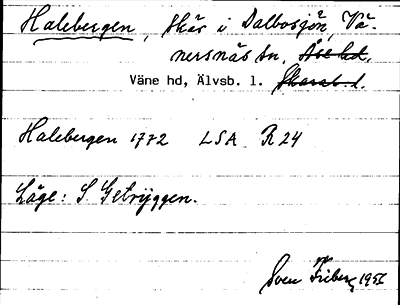 Halebergen, skär i Dalbosjön, Vä-
nersnäs sn, Åse hd,
Väne hd, Älvsb. l. Skarab. l.
Halebergen 1772 LSA R 24
Läge: S. Getryggen.
Sven Friberg 1956